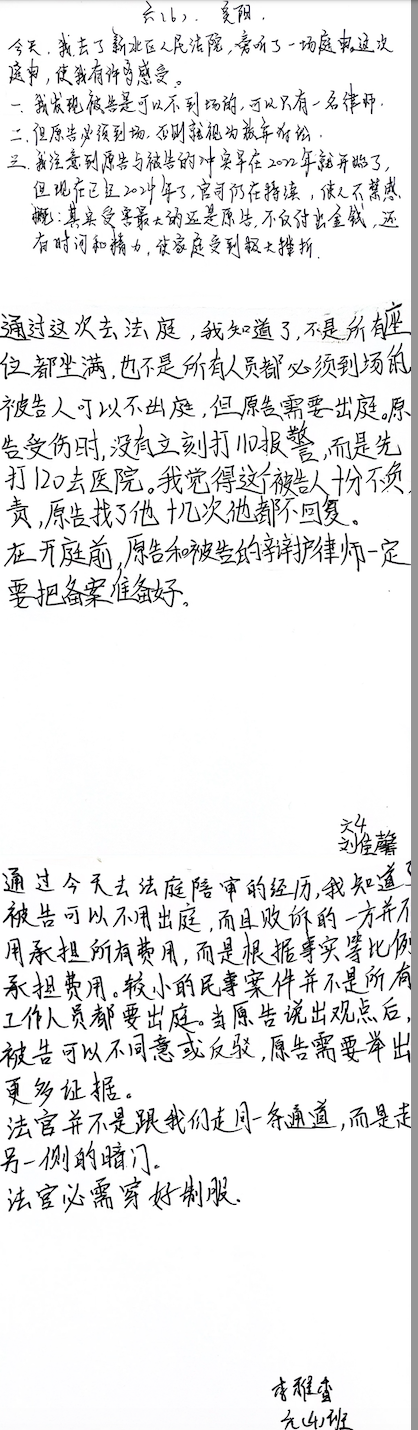 六(6). 夏阳.
今天,我去了新北区人民法院,旁听了一场庭审,这次
庭审,使我有许多感受。
一.我发现被告是可以不到场的,可以只有一名律师.
二.但原告必须到场,否则就视为放弃诉讼.
三.我注意到原告与被告的冲突早在2022年就开始了,
但现在已过2024年了,官司仍在持续,使人不禁感
慨:其实受害最大的还是原告,不仅付出金钱,还
有时间和精力,使家庭受到极大挫折.
通过这次去法庭,我知道了,不是所有座
位都坐满,也不是所有人员都必须到场的
被告人可以不出庭,但原告需要出庭。原
告受伤时,没有立刻打110报警,而是先
打120去医院。我觉得这个被告人十分不负
责,原告找了他十几次他都不回复。
在开庭前,原告和被告的辩护律师一定
要把备案准备好。
六4
刘佳馨
通过今天去法庭陪审的经历,我知道了
被告可以不用出庭,而且败诉的一方并不
用承担所有费用,而是根据事实等比例
承担费用。较小的民事案件并不是所有
工作人员都要出庭。当原告说出观点后,
被告可以不同意或反驳,原告需要举出
更多证据。
法官并不是跟我们走同一条通道,而是走
另一侧的暗门。
法官必需穿好制服.
李雅香
六(4)班